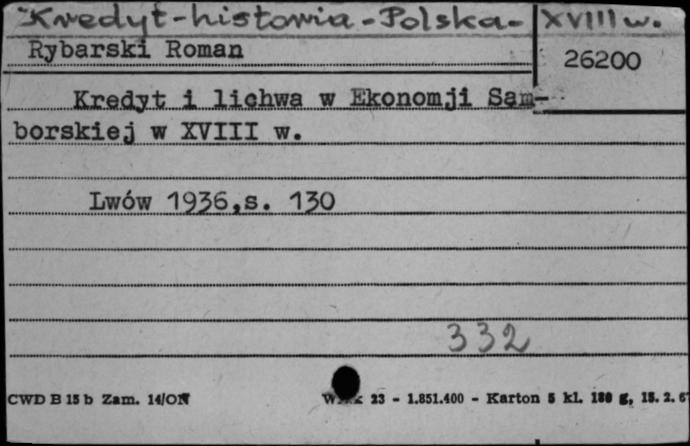 Kredyt-historia-Polska- XVIII w.
Rybarski Roman
26200
Kredyt i lichwa w Ekonomji Sam-
borskiej w XVIII w.
Lwów 1936,s. 130
332
CWD B 15 b Zam. 14/ON 23 - 1.851.400 - Karton 5 kl. 180 g, 15. 2. 6